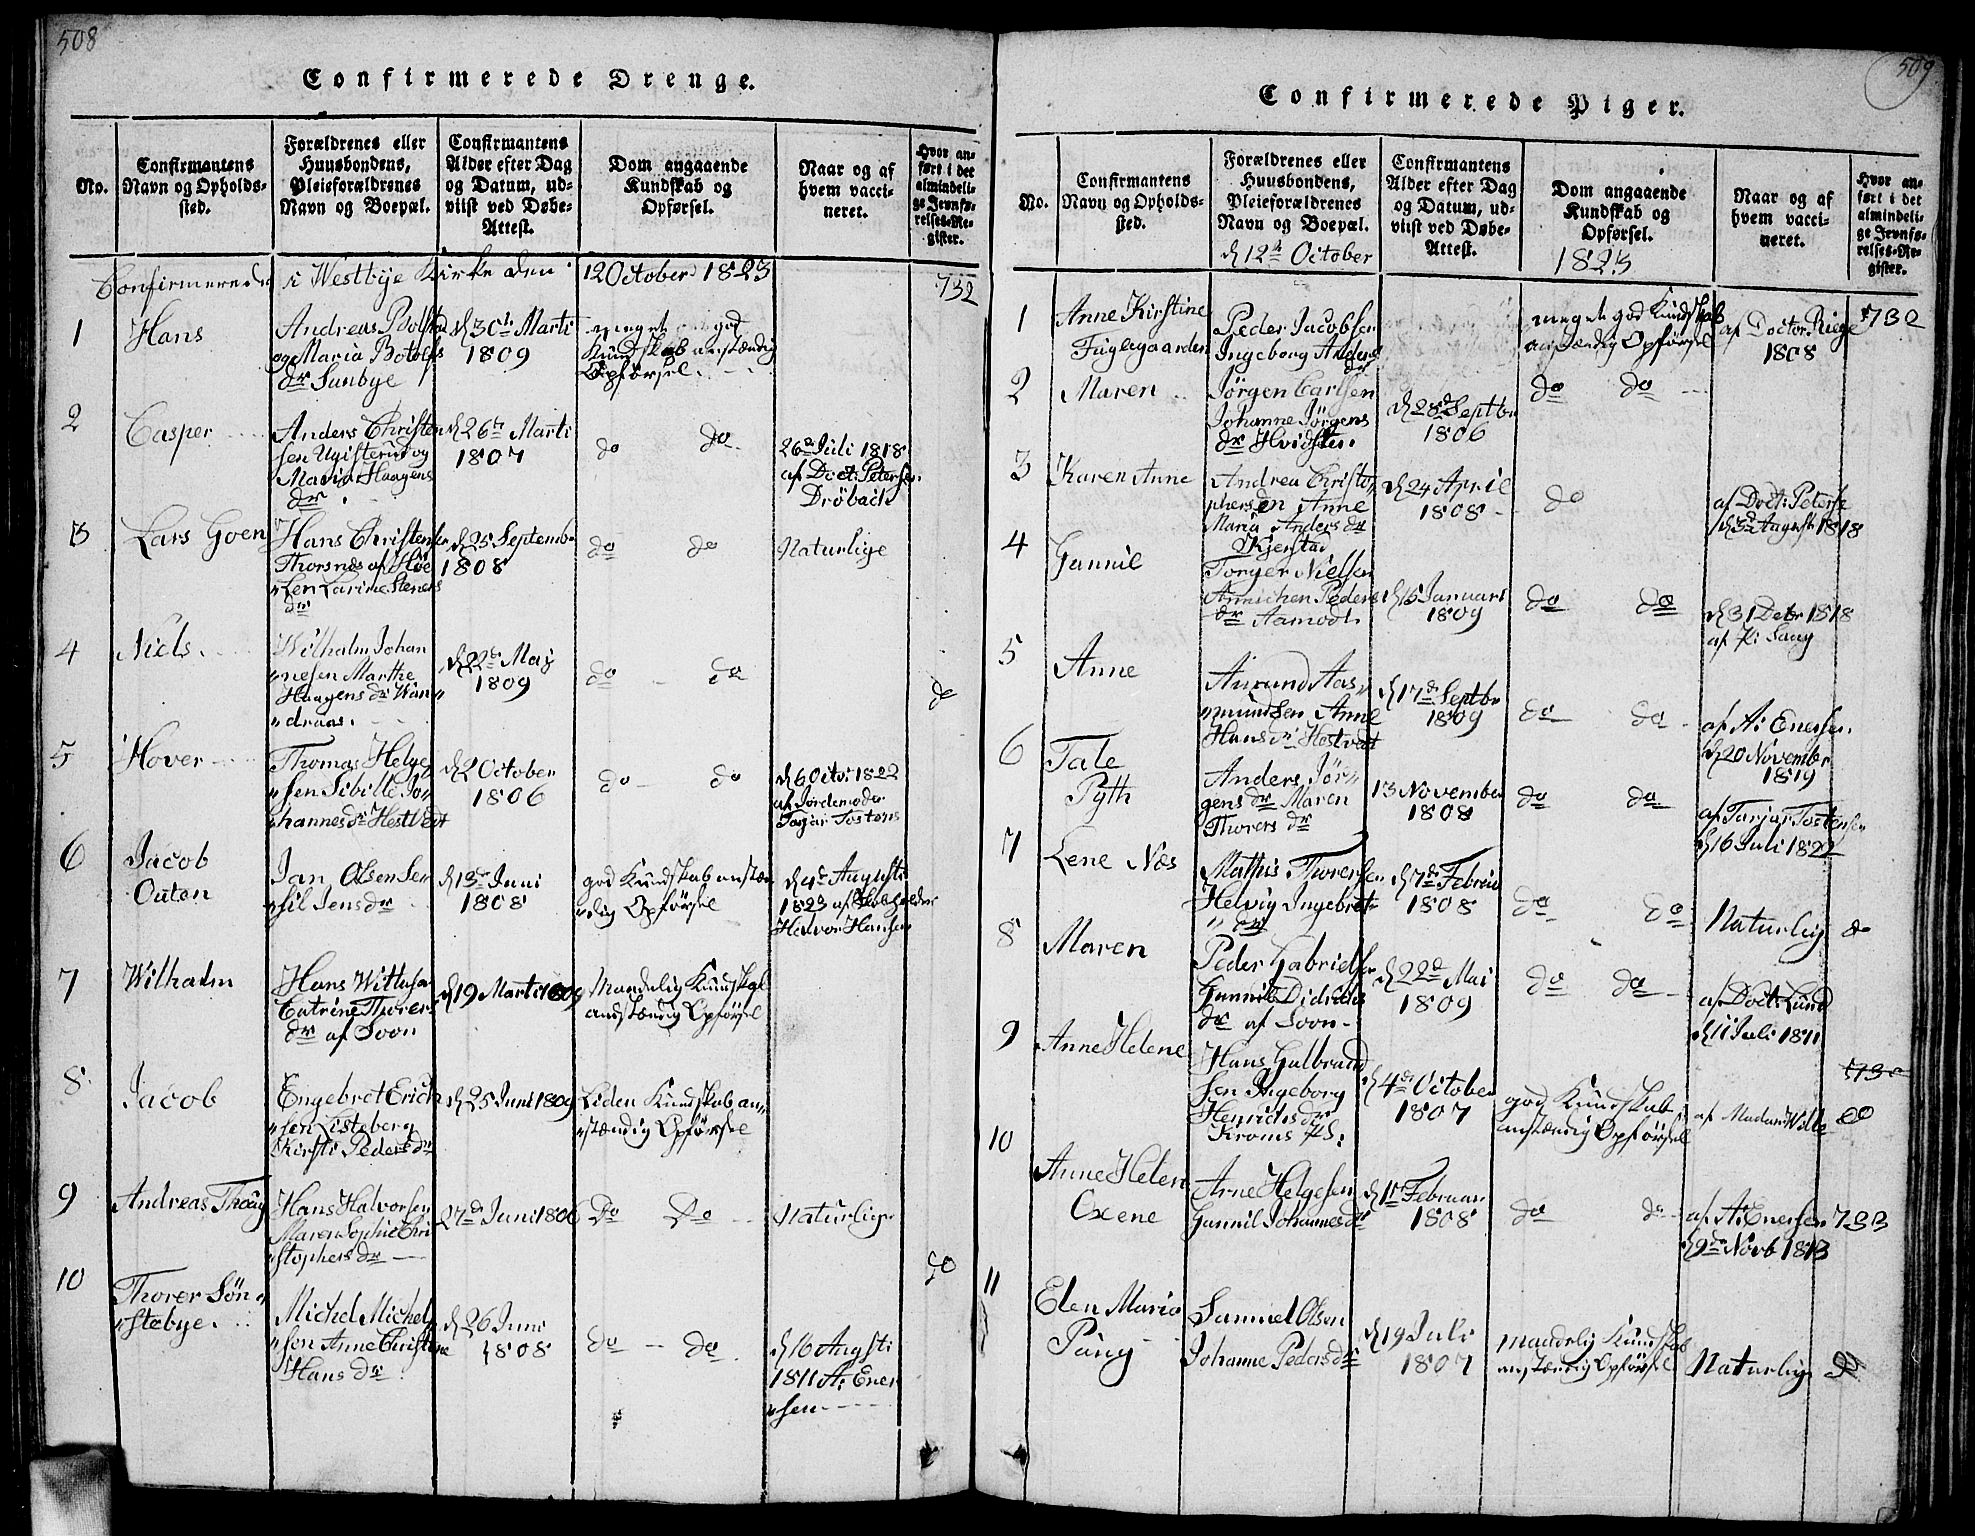 508
Confirmerede Drenge.
No.
Confirmantens
Navn og Opholds-
sted.
Forældrenes eller
Huusbondens,
Pleieforældrenes
Navn og Boepæl.
Confirmantens
Alder efter Dag
og Datum, ud-
viist ved Døbe-
Attest.
Dom angaaende
Kundskab og
Opførsel.
Naar og af
hvem vacci-
neret.
Hvor an-
ført i det
almindeli-
ge Jevnfø-
relses-Re-
gister.
Confirmerede i Westbye Kirke den 12 October 1823
732
1
Hans
Andreas
og Maria Botolfs
dr Sunbye
d 30te Marti
1809
meget god
Kundskab anstændig
Opførsel
2
Casper
Anders Christen
sen og
Maria Haagens
dr
d 26te Marti
1807
do do
26de Juli 1818
af Doct: Petersen
Dröbach
3
Lars Goen
Hans Christensen
Thorsnæs af
Len Larine Steners
dr
d 25 Septemb
1808
do do
Naturlige
4
Niels
Wilhalm Johan
"nesen Marthe
Haagens dr Wan"
"draas.
d 22de Maj
1809
do do
do
5
Hover
Thomas Helge
"sen Sibille Jo"
"hannesdr Hestvedt
d 2 October
1806
do do
d 6 Octo: 1822
af Jordemoder
Tostens
6
Jacob
Outen
Jan Olsen Ser
"sil Jensdr
d 13de Juni
1808
god Kundskab anstæn
"dig Opførsel
d 4de Augusti
1823 af
Helvor Hansen
7
Wilhalm
Hans
Catrine Thorer
dr af Soon
d 19 Marti 1809
Maadelig Kundskab
anstændig Opførsel
8
Jacob
Engebret Erich
"sen Listeberg
Kirsti Pedersdr
d 25 Juni 1809
Liden Kundskab an"
"stændig Opførsel
9
Andreas
Hans Halvorsen
Maren Sophie Chri
"stophers dr
27de Juni 1806
Do Do
Naturlige
do
10
Thorer Sön"
"stebye.
Michel Michel
"sen Anne Christine
Hans dr
d 26 Juni
1808
do do
d 16 Augsti
1811 A: Ener
"sen
509
Confirmerede Piger.
No.
Confirmantens
Navn og Opholds-
sted.
Forældrenes eller
Huusbondens,
Pleieforældrenes
Navn og Boepæl.
Confirmantens
Alder efter Dag
og Datum, ud-
viist ved Døbe-
Attest.
Dom angaaende
Kundskab og
Opførsel.
Naar og af
hvem vacci-
neret.
Hvor an-
ført i det
almindeli-
ge Jevnfø-
relses-Re-
gister.
d 12te October
1823
1
Anne Kirstine
Fuglegaarden
Peder Jacobsen
Ingeborg Anders
dr
meget god Kundskab
anstændig Opførsel
af Doctor Riege
1808
732
2
Maren
Jörgen Carlsen
Johanne Jörgens
dr Hvidsten
d 28de Septbr
1806
do do
3
Karen Anne
Andrea Christo"
phersen Anne
Maria Anders dr
Kjenstad
d 24 April
1808
do
af Doct: Peterse
August 1818
4
Gunnil
Torger Nielsen
Annichen Peders
dr Aamodt
d 15 Januari
1809
do do
d 31 Decbr 1818
af
5
Anne
Amund Aas"
"mundsen Anne
Hans dr Hestvedt
d 17de Septbr
1809
do do
af A: Enersen
d 20 November
1819
6
Tale
Pyth
Anders Jör"
gens dr Maren
Thorers dr
13 November
1808
do do
af Tarjar Tostensen
d 16 Juli 1822
7
Lene Næs
Mathis Thorersen
Helvig Ingebret
" dr
d 7de Febrúa
1808
do do
Naturlig
do
8
Maren
Peder Gabrielsen
Gunnil Didrichs
dr af Soon
d 22de Mai
1809
do do
af Doct: Lund
d 11 Juli 1811
9
Anne Helene
Hans Gulbrand
sen Ingeborg
Henrichsdr
Kroms Pl:
d 4de October
1807
god Kundskab
anstændig Opførsel
af Madam
do
10
Anne Helen
Oxene
Arne Helgesen
Gunnil Johannesdr
d 1te Februar
1808
do do
af A: Enersen
d 9de Novb 1813
733
11
Elen Maria
Pung
Samuel Olsen
Johanne Pedersdr
d 19 Juli
1807
maadelig Kundskab
anstændig Opførsel
Naturlig
do